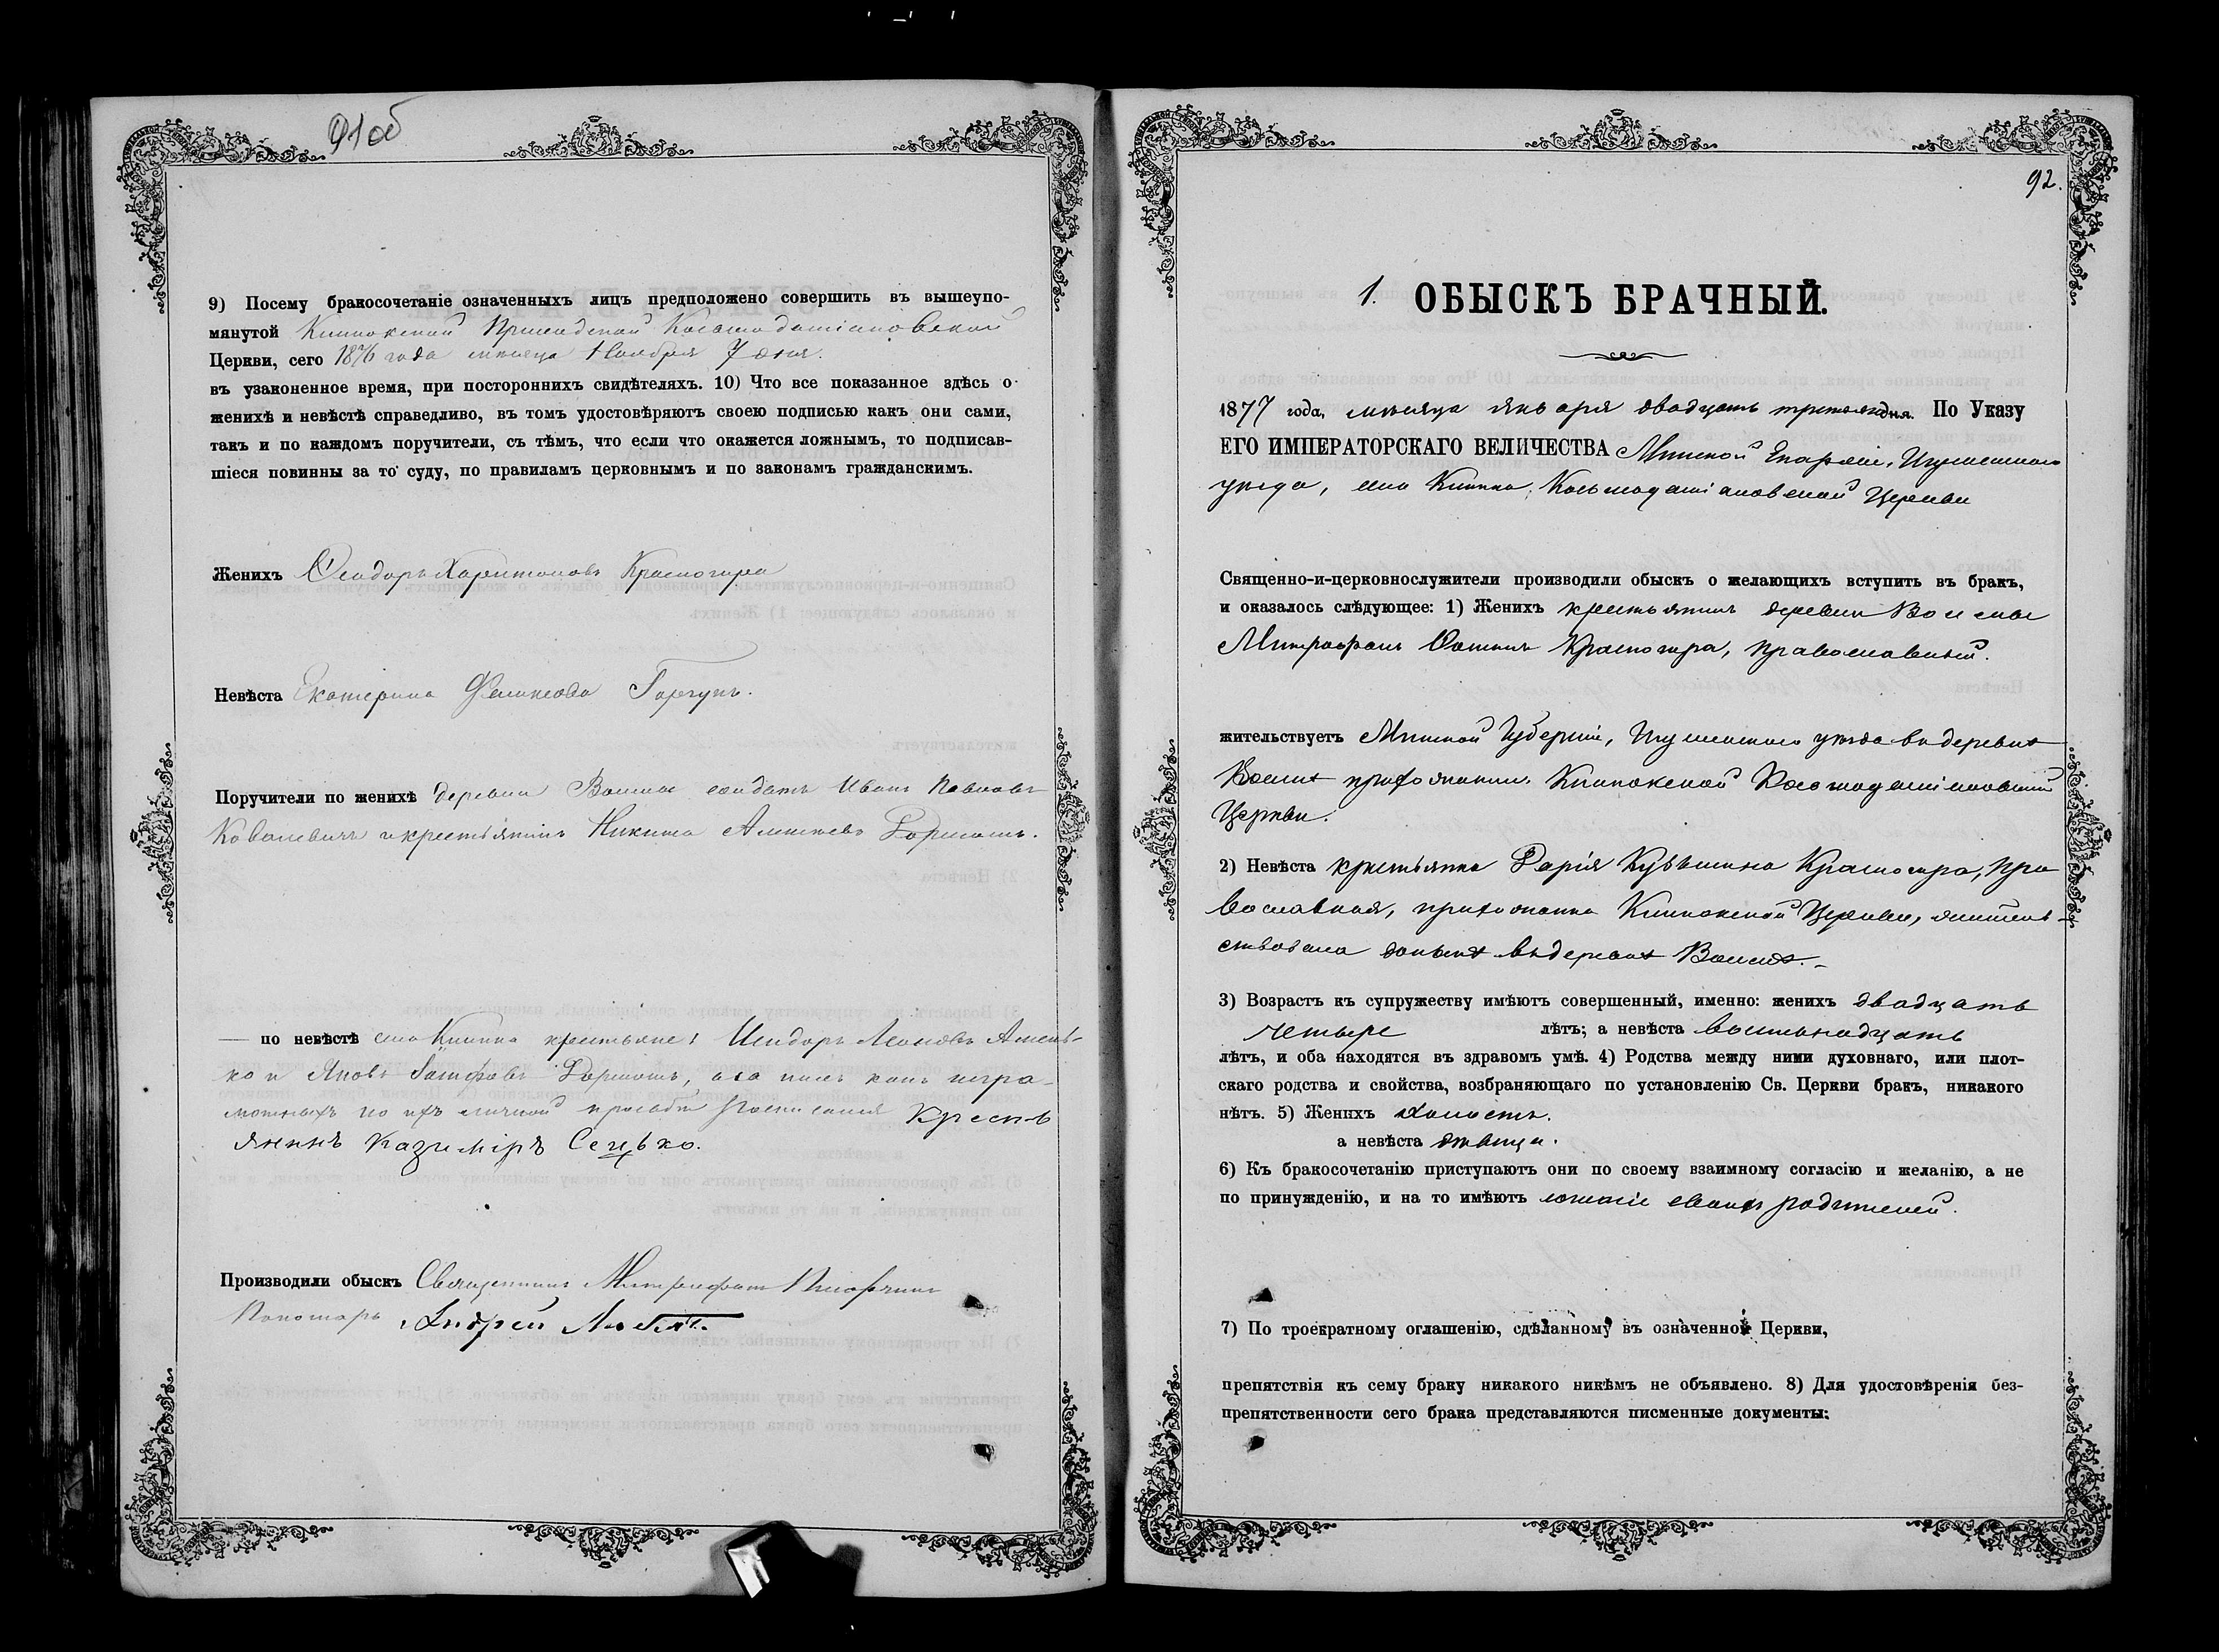 91об
9) Посему бракосочетаніе означенныхъ лицъ предположено совершить въ вышеупо-
мянутой Клинокской Приходской Космодаміановской
Церкви, сего 1876 года мѣсяца Ноября 7 дня.
въ узаконенное время, при постороннихъ свидѣтеляхъ. 10) Что все показанное здѣсь о
женихѣ и невѣстѣ справедливо, въ томъ удостовѣряютъ своею подписью какъ они сами,
такъ и по каждомъ поручители, съ тѣмъ, что если что окажется ложнымъ, то подписав-
шіеся повинны за то суду, по правиламъ церковнымъ и по законамъ гражданскимъ.
Женихъ Ѳеодоръ Харитоновъ Красногира
Невѣста Екатерина Феликсова Горгунъ.
Поручители по женихѣ деревни Волмы солдатъ Иванъ Павловъ
Ковалевичъ и крестьянинъ Никита Алексѣевъ
по невѣстѣ села Клинка крестьяне: Исидоръ Леоновъ
ко и Яковъ а за нихъ какъ негра-
мотныхъ по ихъ личной просьбѣ росписался Кресть
янинъ Казиміръ Сецько.
Производили обыскъ Священникъ Митрофанъ
Пономарь Андрей
92.
1. ОБЫСКЪ БРАЧНЫЙ.
1877 года, мѣсяца января двадцать третьяго дня. По Указу
ЕГО ИМПЕРАТОРСКАГО ВЕЛИЧЕСТВА Минской Епархіи, Игуменскаго
уѣзда, села Клинка, Космодаміановской Церкви
Священно-и-церковнослужители производили обыскъ о желающихъ вступить въ бракъ,
и оказалось слѣдующее: 1) Женихъ крестьянинъ деревни Волмы
Митрофанъ Ѳоминъ Красногира, православный.
жительствуетъ Минской Губерніи, Игуменскаго уѣзда въ деревнѣ
Волмѣ прихожанинъ Клинокской Космодаміановской
Церкви.
2) Невѣста крестьянка Дарія Кузьмина Красногира, пра
вославная, прихожанка Клинокской Церкви, житель-
ствовала донынѣ въ деревнѣ Волмѣ.
3) Возрастъ къ супружеству имѣютъ совершенный, именно: женихъ двадцать
четыре лѣтъ; а невѣста восьмнадцать
лѣтъ, и оба находятся въ здравомъ умѣ. 4) Родства между ними духовнаго, или плот-
скаго родства и свойства, возбраняющаго по установленію Св. Церкви бракъ, никакого
нѣтъ. 5) Женихъ холостъ.
а невѣста дѣвица.
6) Къ бракосочетанію приступаютъ они по своему взаимному согласію и желанію, а не
по принужденію, и на то имѣютъ своихъ родителей.
7) По троекратному оглашенію, сдѣланному въ означенной Церкви,
препятствія къ сему браку никакого никѣмъ не объявлено. 8) Для удостовѣренія без-
препятственности сего брака представляются писменные документы: